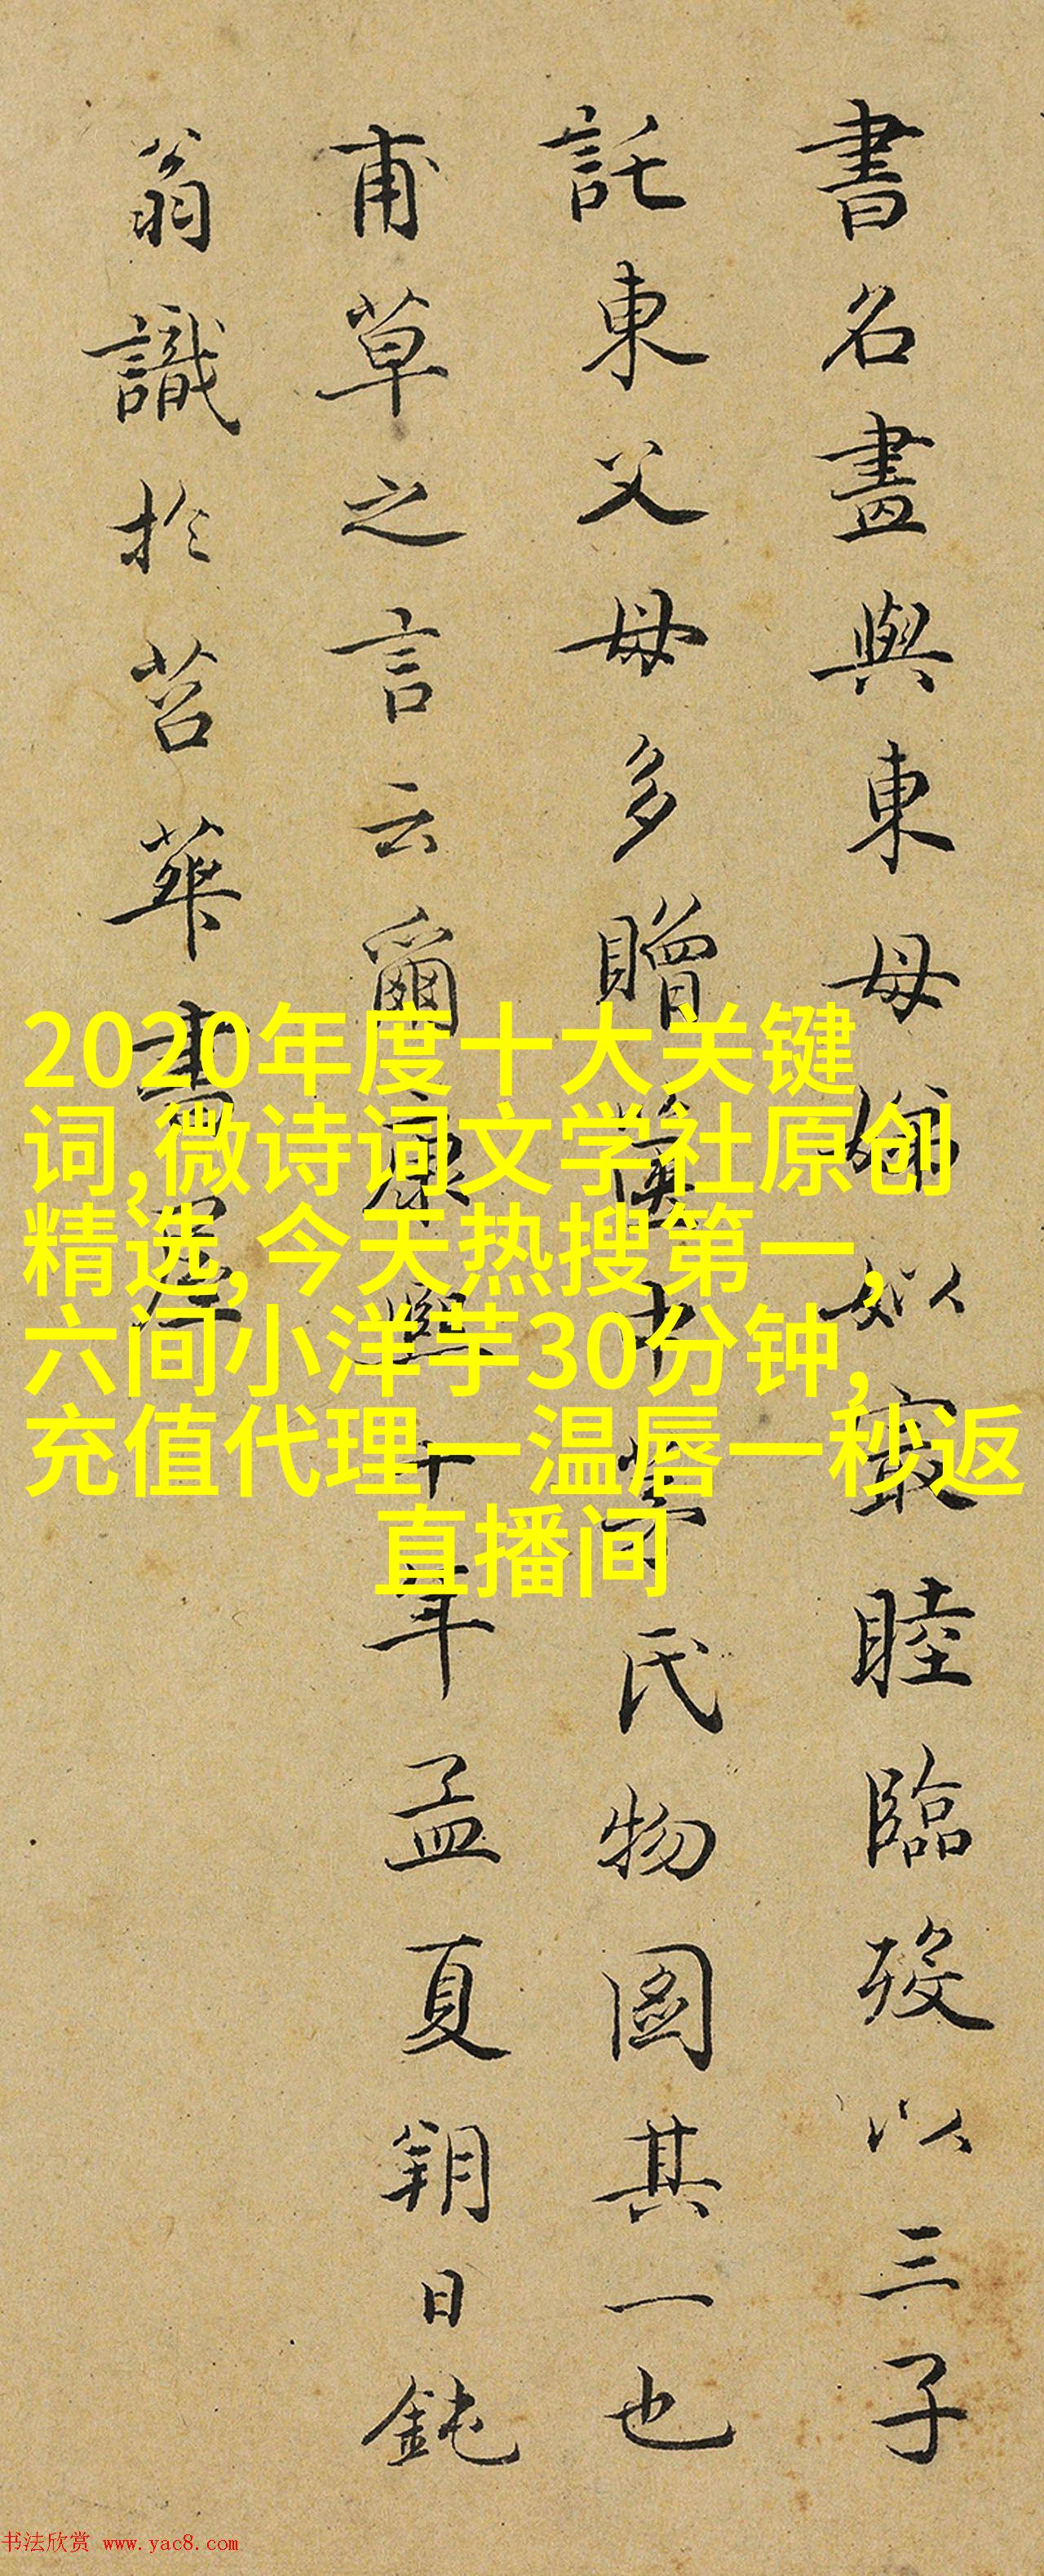 書名畫與東母娣姒㝡睦臨歿以三子
託東父母多贈氏物圖其一也
甫草之言云爾康熙十年孟夏朔日鈍
翁識於苕華書屋
2020年度十大关键
词,微诗词文学社原创
精选,今天热搜第一,
六间小洋芋30分钟,
充值代理一温唇一秒返
直播间
书法欣赏 www.yac8.com